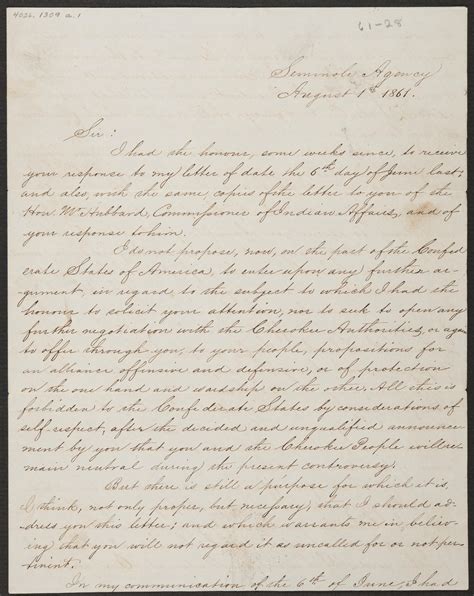 4026.1309 a.1
61-28
Seminole Agency
August 1st 1861.
Sir:
I had the honour, some weeks since, to receive
your response to my letter of date the 6th day of June last;
and also, with the same, copies of the letter to you of the
Hon. Mr Hubbard, Commissioner of Indian Affairs, and of
your response to him.
I do not propose, now, on the part of the Confed-
erate States of America, to enter upon any further ar-
gument, in regard to the subject to which I had the
honour to solicit your attention, nor to seek to open any
further negotiation with the Cherokee Authorities, or again
to offer through you, to your people, propositions for
an alliance offensive and defensive, or of protection
on the one hand and wardship on the other. All this is
forbidden to the Confederate States by considerations of
self-respect, after the decided and unqualified announce-
ment by you that you and the Cherokee People will re-
main neutral during the present controversy.
But there is still a purpose for which it is,
I think, not only proper, but necessary, that I should ad-
dress you this letter; and which warrants me in believ-
ing that you will not regard it as uncalled for or not per-
tinent.
In my communication of the 6th of June, I had